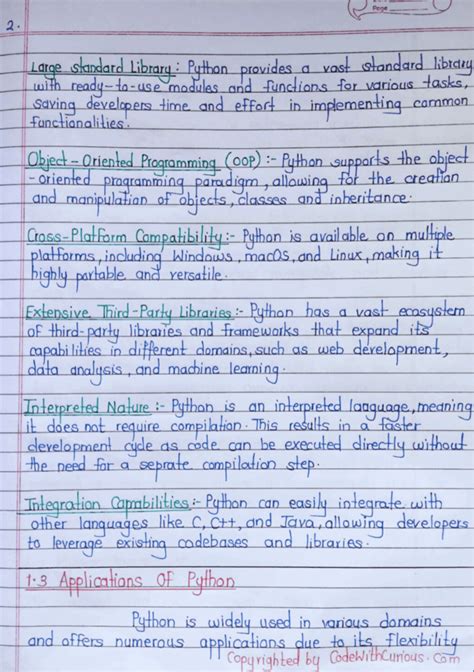 Page
2.
Large Standard Library : Python provides a vast standard library
with ready-to-use modules and functions for various tasks,
saving developers time and effort in implementing common
functionalities.
Object-Oriented Programming (OOP) :- Python supports the object
-oriented programming paradigm, allowing for the creation
and manipulation of objects, classes and inheritance.
Cross-Platform Compatibility :- Python is available on multiple
platforms, including Windows, macOS, and Linux, making it
highly portable and versatile.
Extensive Third-Party Libraries :- Python has a vast ecosystem
of third-party libraries and frameworks that expand its
capabilities in different domains, such as web development,
data analysis, and machine learning.
Interpreted Nature :- Python is an interpreted language, meaning
it does not require compilation. This results in a faster
development cycle as code can be executed directly without
the need for a seprate compilation step.
Integration Capabilities :- Python can easily integrate with
other languages like C, C++, and Java, allowing developers
to leverage existing codebases and libraries.
1.3 Applications Of Python
Python is widely used in various domains
and offers numerous applications due to its flexibility
Copyrighted by CodeWithCurious.com